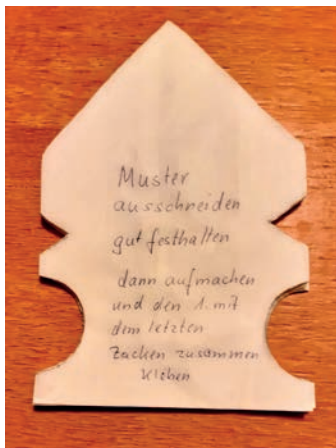 Muster
ausschneiden
gut festhalten
dann aufmachen
und den 1. mit
dem letzten
Zacken zusammen
kleben